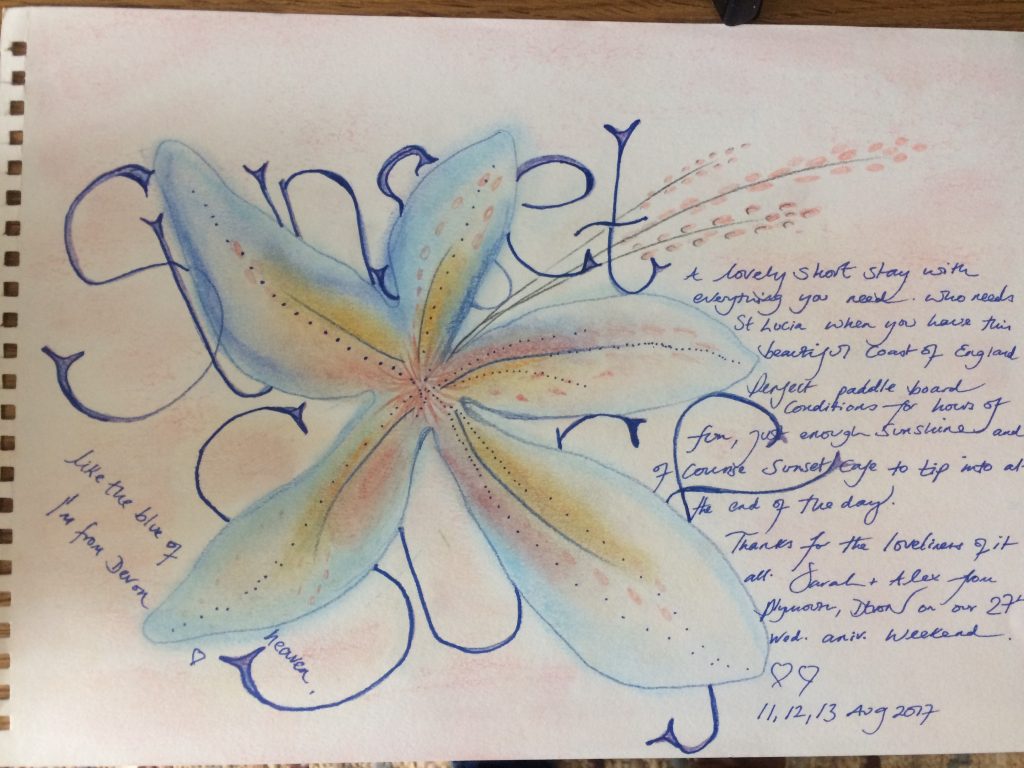 Sunset
Surf
A lovely short stay with
everything you need. Who needs
St Lucia when you have this
beautiful coast of England
Perfect paddle board
conditions for hours of
fun, just enough sunshine and
of course Sunset Cafe to tip into at
the end of the day.
Thanks for the loveliness of it
all. Sarah + Alex from
Plymouth, Devon on our 27th
wed. aniv. weekend.
11, 12, 13 Aug 2017
like the blue of
I'm from Devon
heaven,